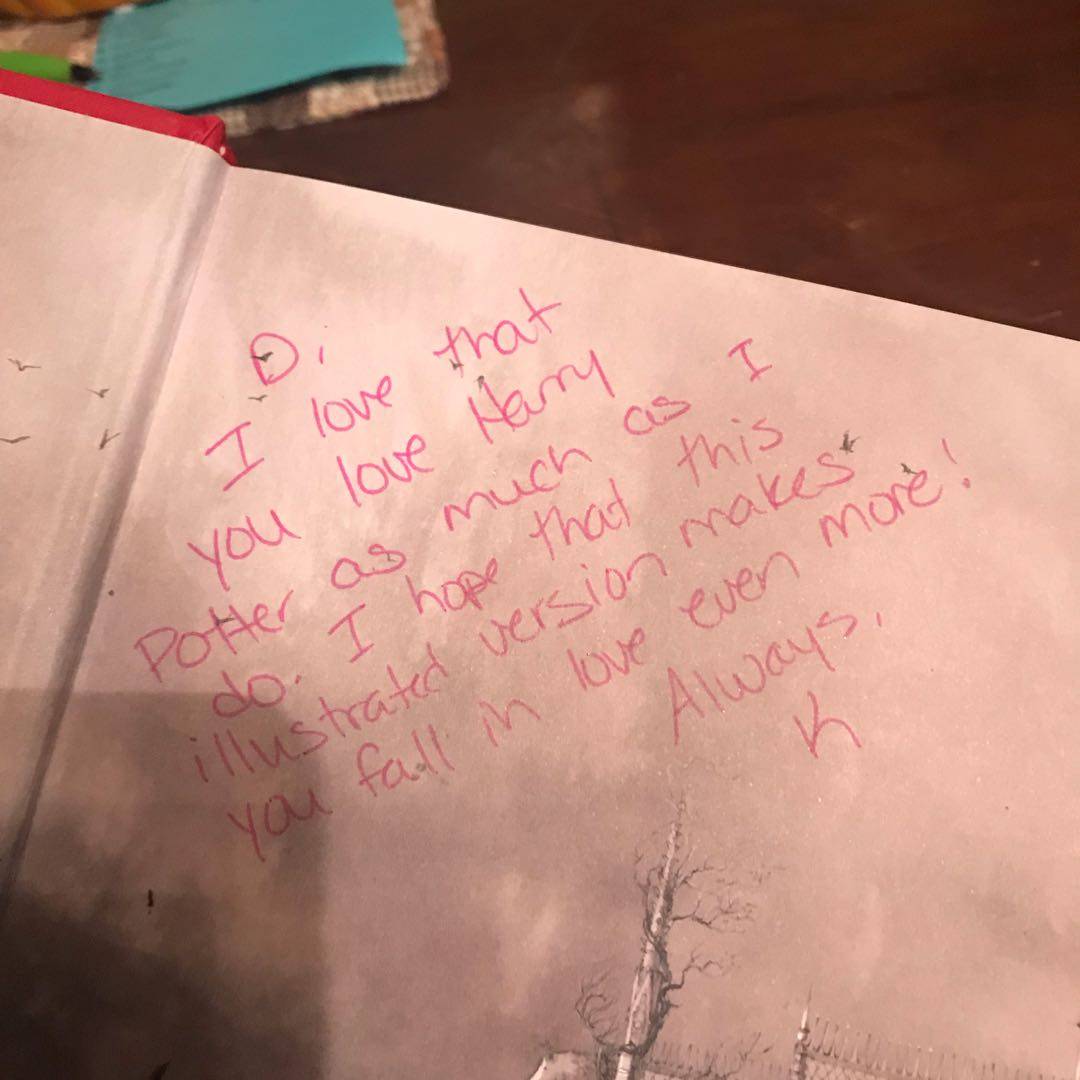 D,
I love that
you love Harry
Potter as much as I
do. I hope that this
illustrated version makes
you fall in love even more!
Always,
K